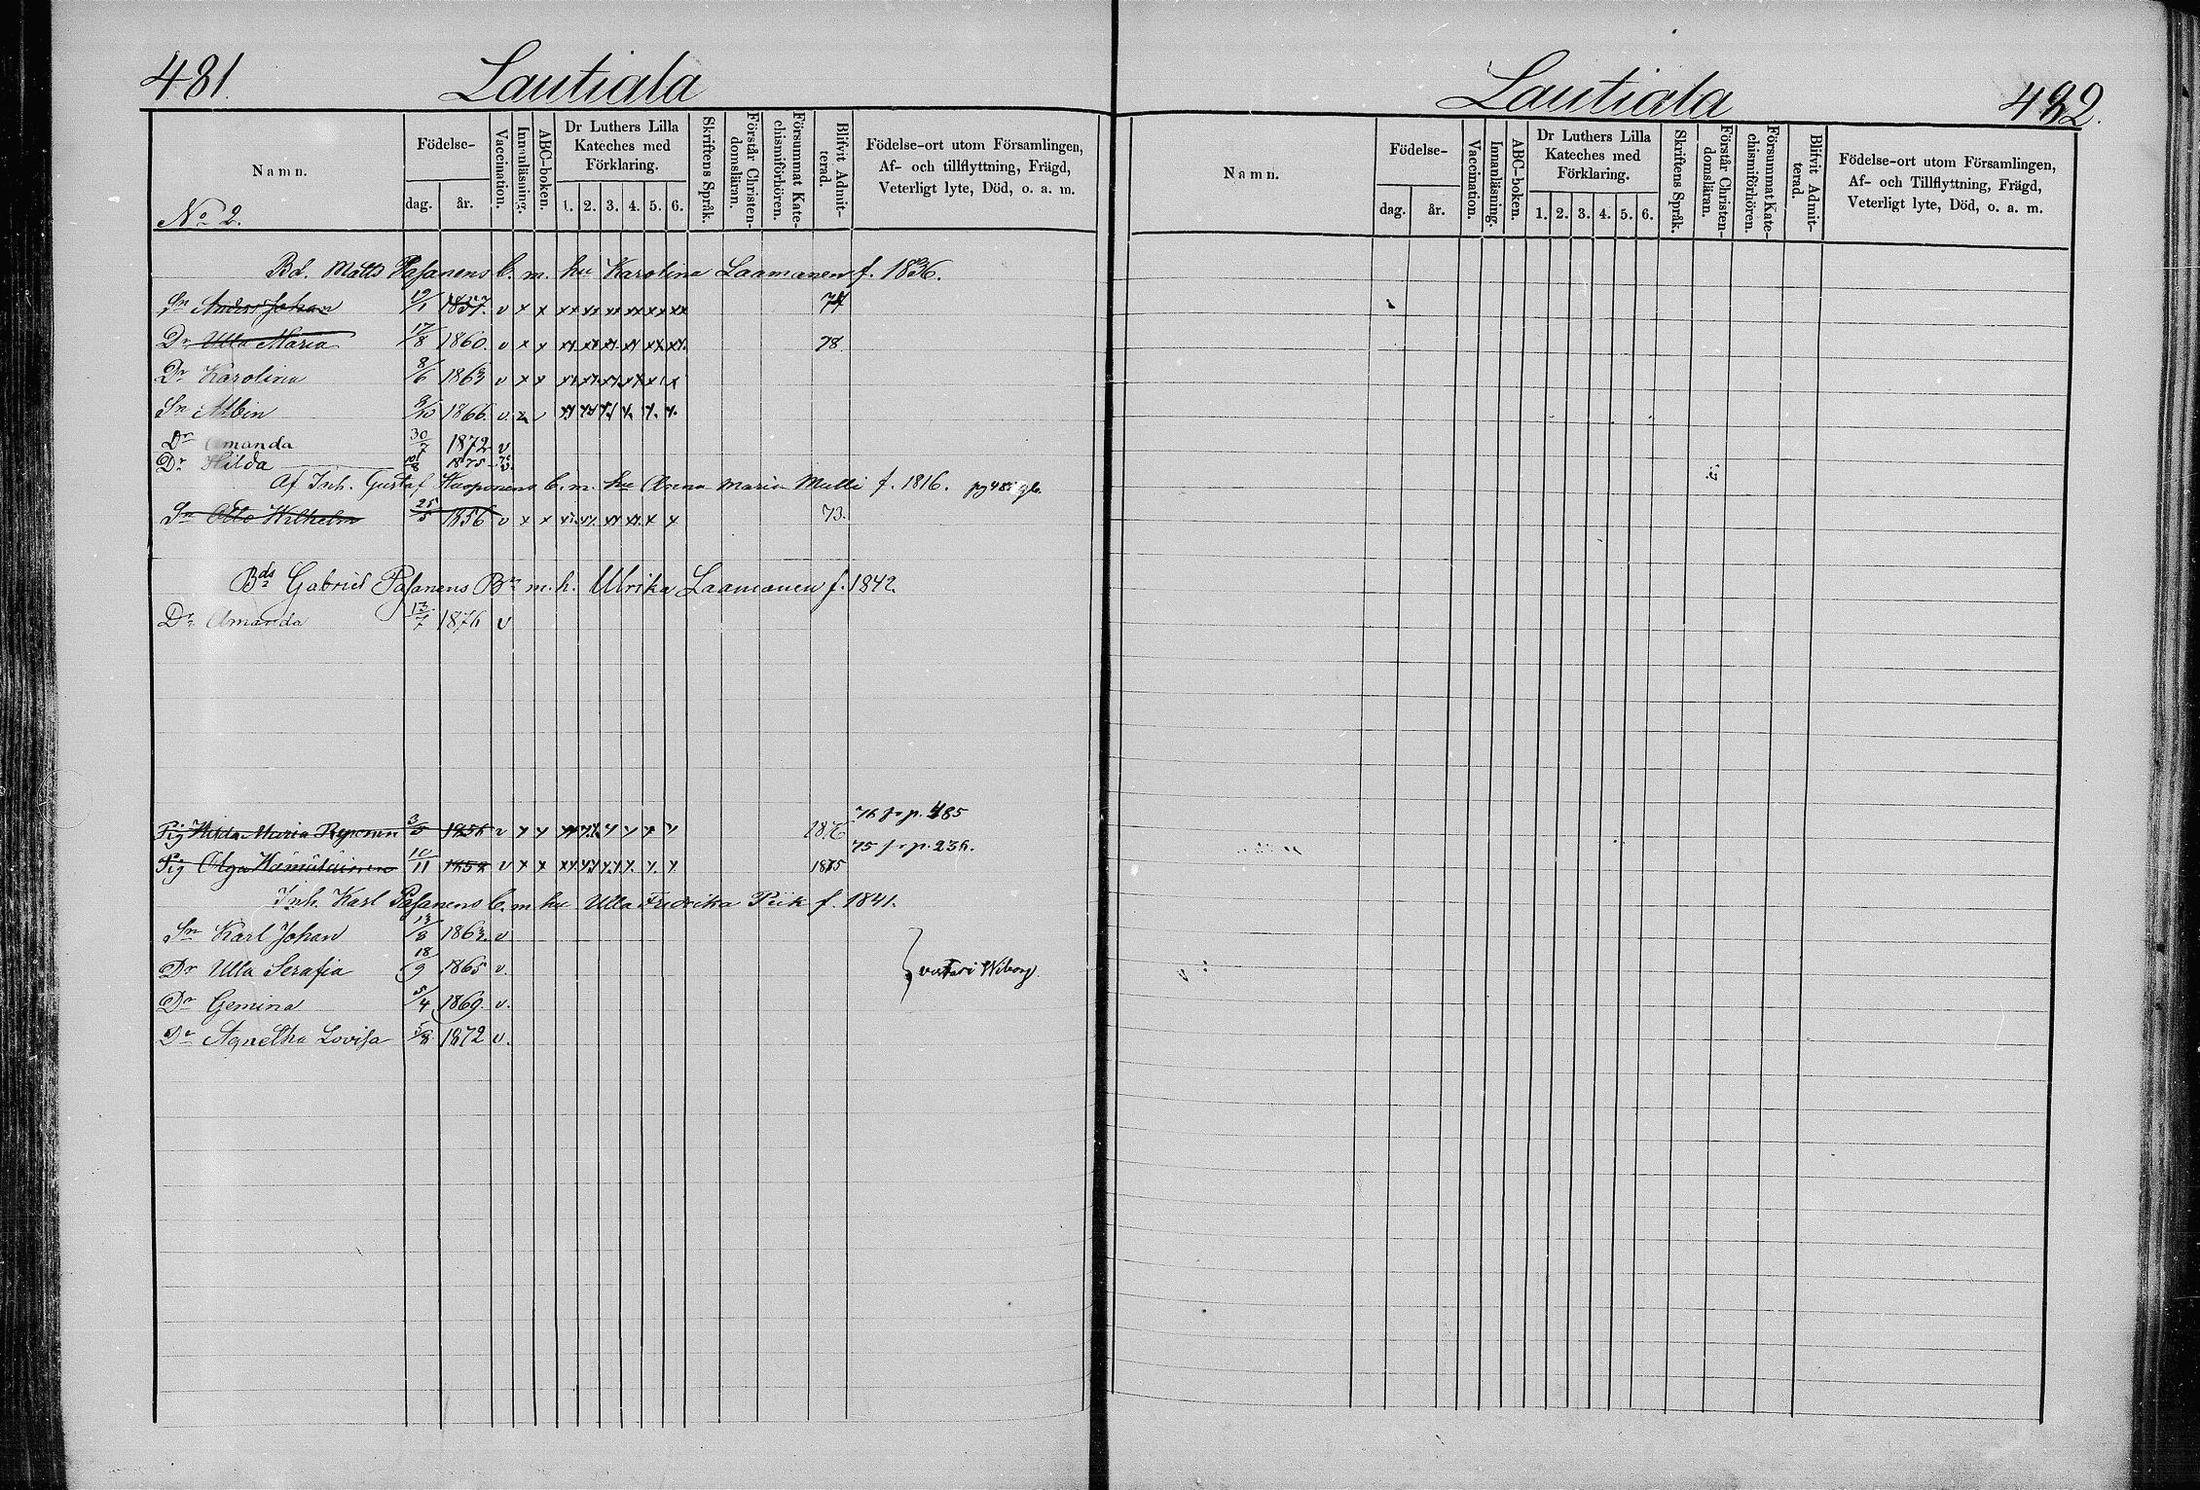 481. Lautiala
Namn.
No 2.
Födelse-
dag. år.
Vaccination.
Innanläsning.
ABC-boken.
Dr Luthers Lilla Kateches med Förklaring.
1. 2. 3. 4. 5. 6.
Skriftens Språk.
Förstår Christendomsläran.
Försummat Katechismiförhören.
Blifvit Admitterad.
Födelse-ort utom Församlingen,
Af- och tillflyttning, Frägd,
Veterligt lyte, Död, o. a. m.
Bd. Matts Pasanens b. m. hu Karolina Laamanen f. 1836.
Sn Anders Johan 19/1 1857. v x x xx xx xx xx xx xx 74
Dr Ulla Maria 17/8 1860. v x x xx xx xx xx xx xx 78.
Dr Karolina 8/6 1863 v x x
Sn Albin 9/10 1866. v.
Dr Amanda 30/7 1872 v
Dr Hilda 1875
Af Inh. Gustaf Kasponens b. m. hu Anna Maria Multi f. 1816.
Sn Otto Wilhelm 25/5 1856 v x x 73.
Bds Gabriel Pasanens Bn m. h. Ulrika Laamanen f. 1842.
Dr Amanda 13/7 1876 v
76 p. 485
Pig Maria Reponen 3/5 v 1876
75 p. 236.
Pig Olga 10/11 v x x 1875
Inh. Karl Pasanens b. m hu Ulla Fredrika Piik f. 1841.
Sn Karl Johan 13/8 1863. v
Dr Ulla Serafia 18/9 1865 v. Wiborg.
Dr Gemina 5/4 1869. v.
Dr Agnetha Lovisa 5/8 1872 v.
Lautiala 482.
Namn.
Födelse-
dag. år.
Vaccination.
Innanläsning.
ABC-boken.
Dr Luthers Lilla Kateches med Förklaring.
1. 2. 3. 4. 5. 6.
Skriftens Språk.
Förstår Christendomsläran.
Försummat Katechismiförhören.
Blifvit Admitterad.
Födelse-ort utom Församlingen,
Af- och Tillflyttning, Frägd,
Veterligt lyte, Död, o. a. m.